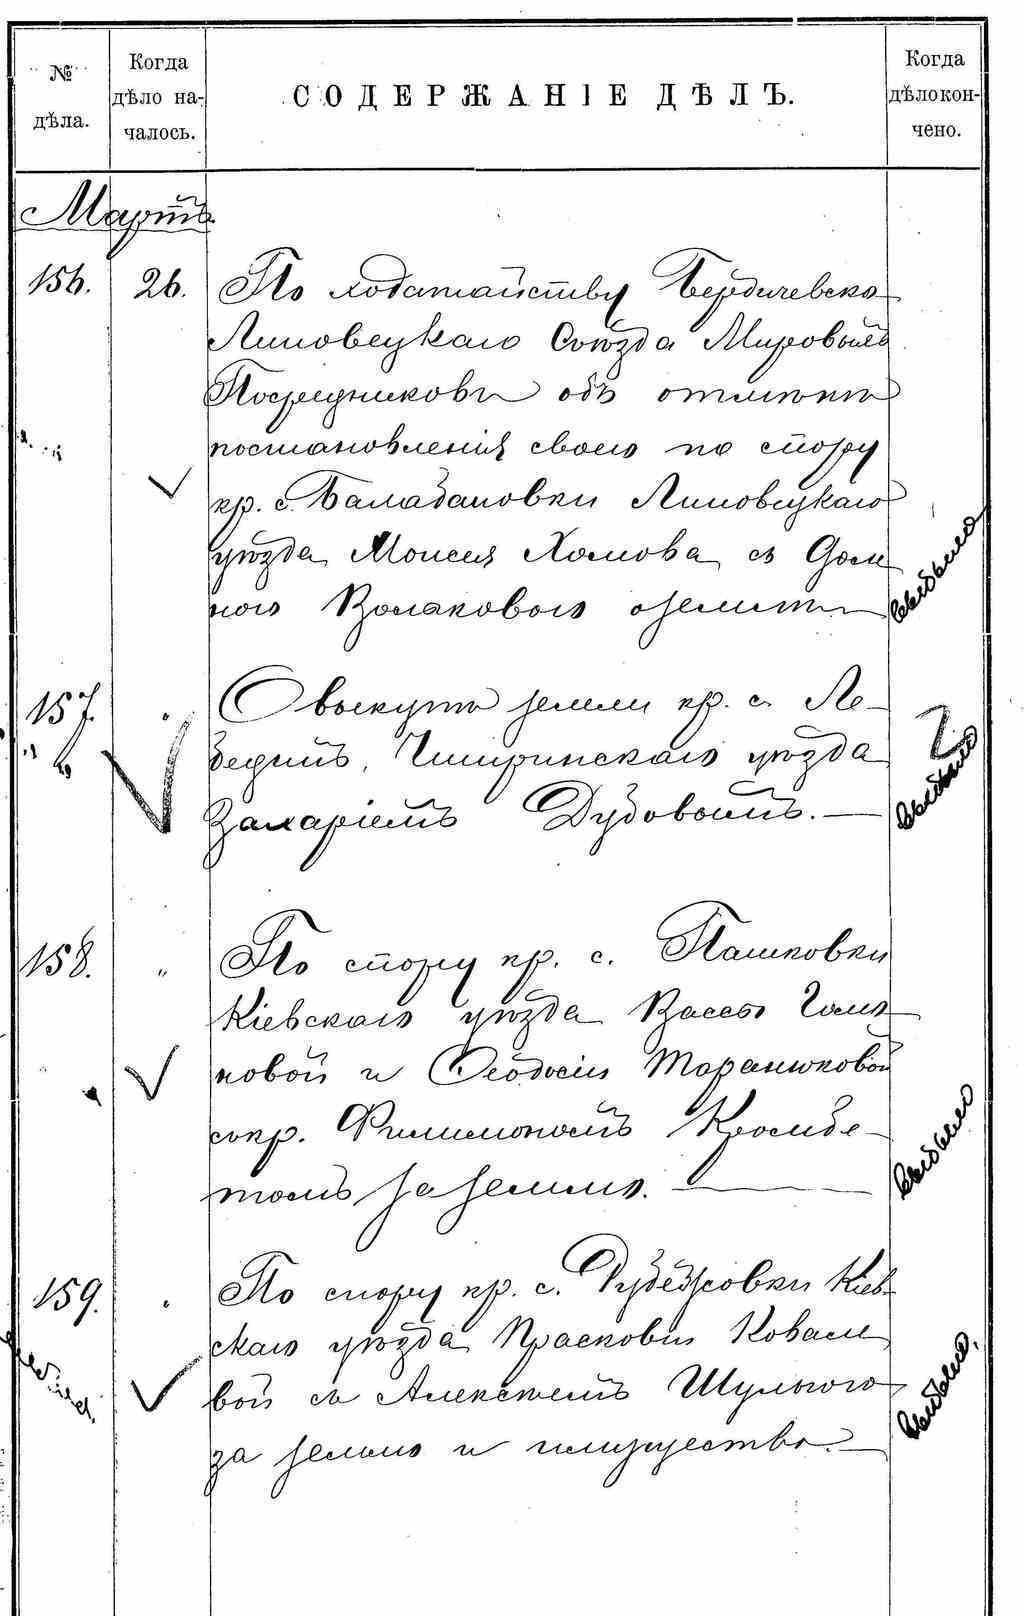 № дѣла.
Когда дѣло на- чалось.
СОДЕРЖАНІЕ ДѢЛЪ.
Когда дѣло кон- чено.
Мартъ.
156. 26. По ходатайству Бердичевско
Липовецкаго Съѣзда Мировыхъ
Посредниковъ объ отмѣнѣ
постановленія своего по спору
кр. с. Балабановки Липовецкаго
уѣзда Моисея Хомова съ Дом
ною Волковою о землѣ
выбыло
157. " О выкупѣ земли кр. с. Ле-
бедина, Чигиринскаго уѣзда
Захаріемъ Дубовымъ. —
2
выбыло
158. " По спору кр. с. Пашковки
Кіевскаго уѣзда Вассы
новой и Ѳеодосіи Таранюковой
съ кр. Филимономъ
томъ за землю. —
выбыло
159. " По спору кр. с. Кіев-
скаго уѣзда Прасковьи Ковале
вой съ Алексѣемъ Шульгою
за землю и имущество. —
выбыло.